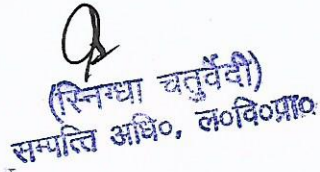 (स्निग्धा चतुर्वेदी)
सम्पत्ति अधि०, ल०वि०प्रा०